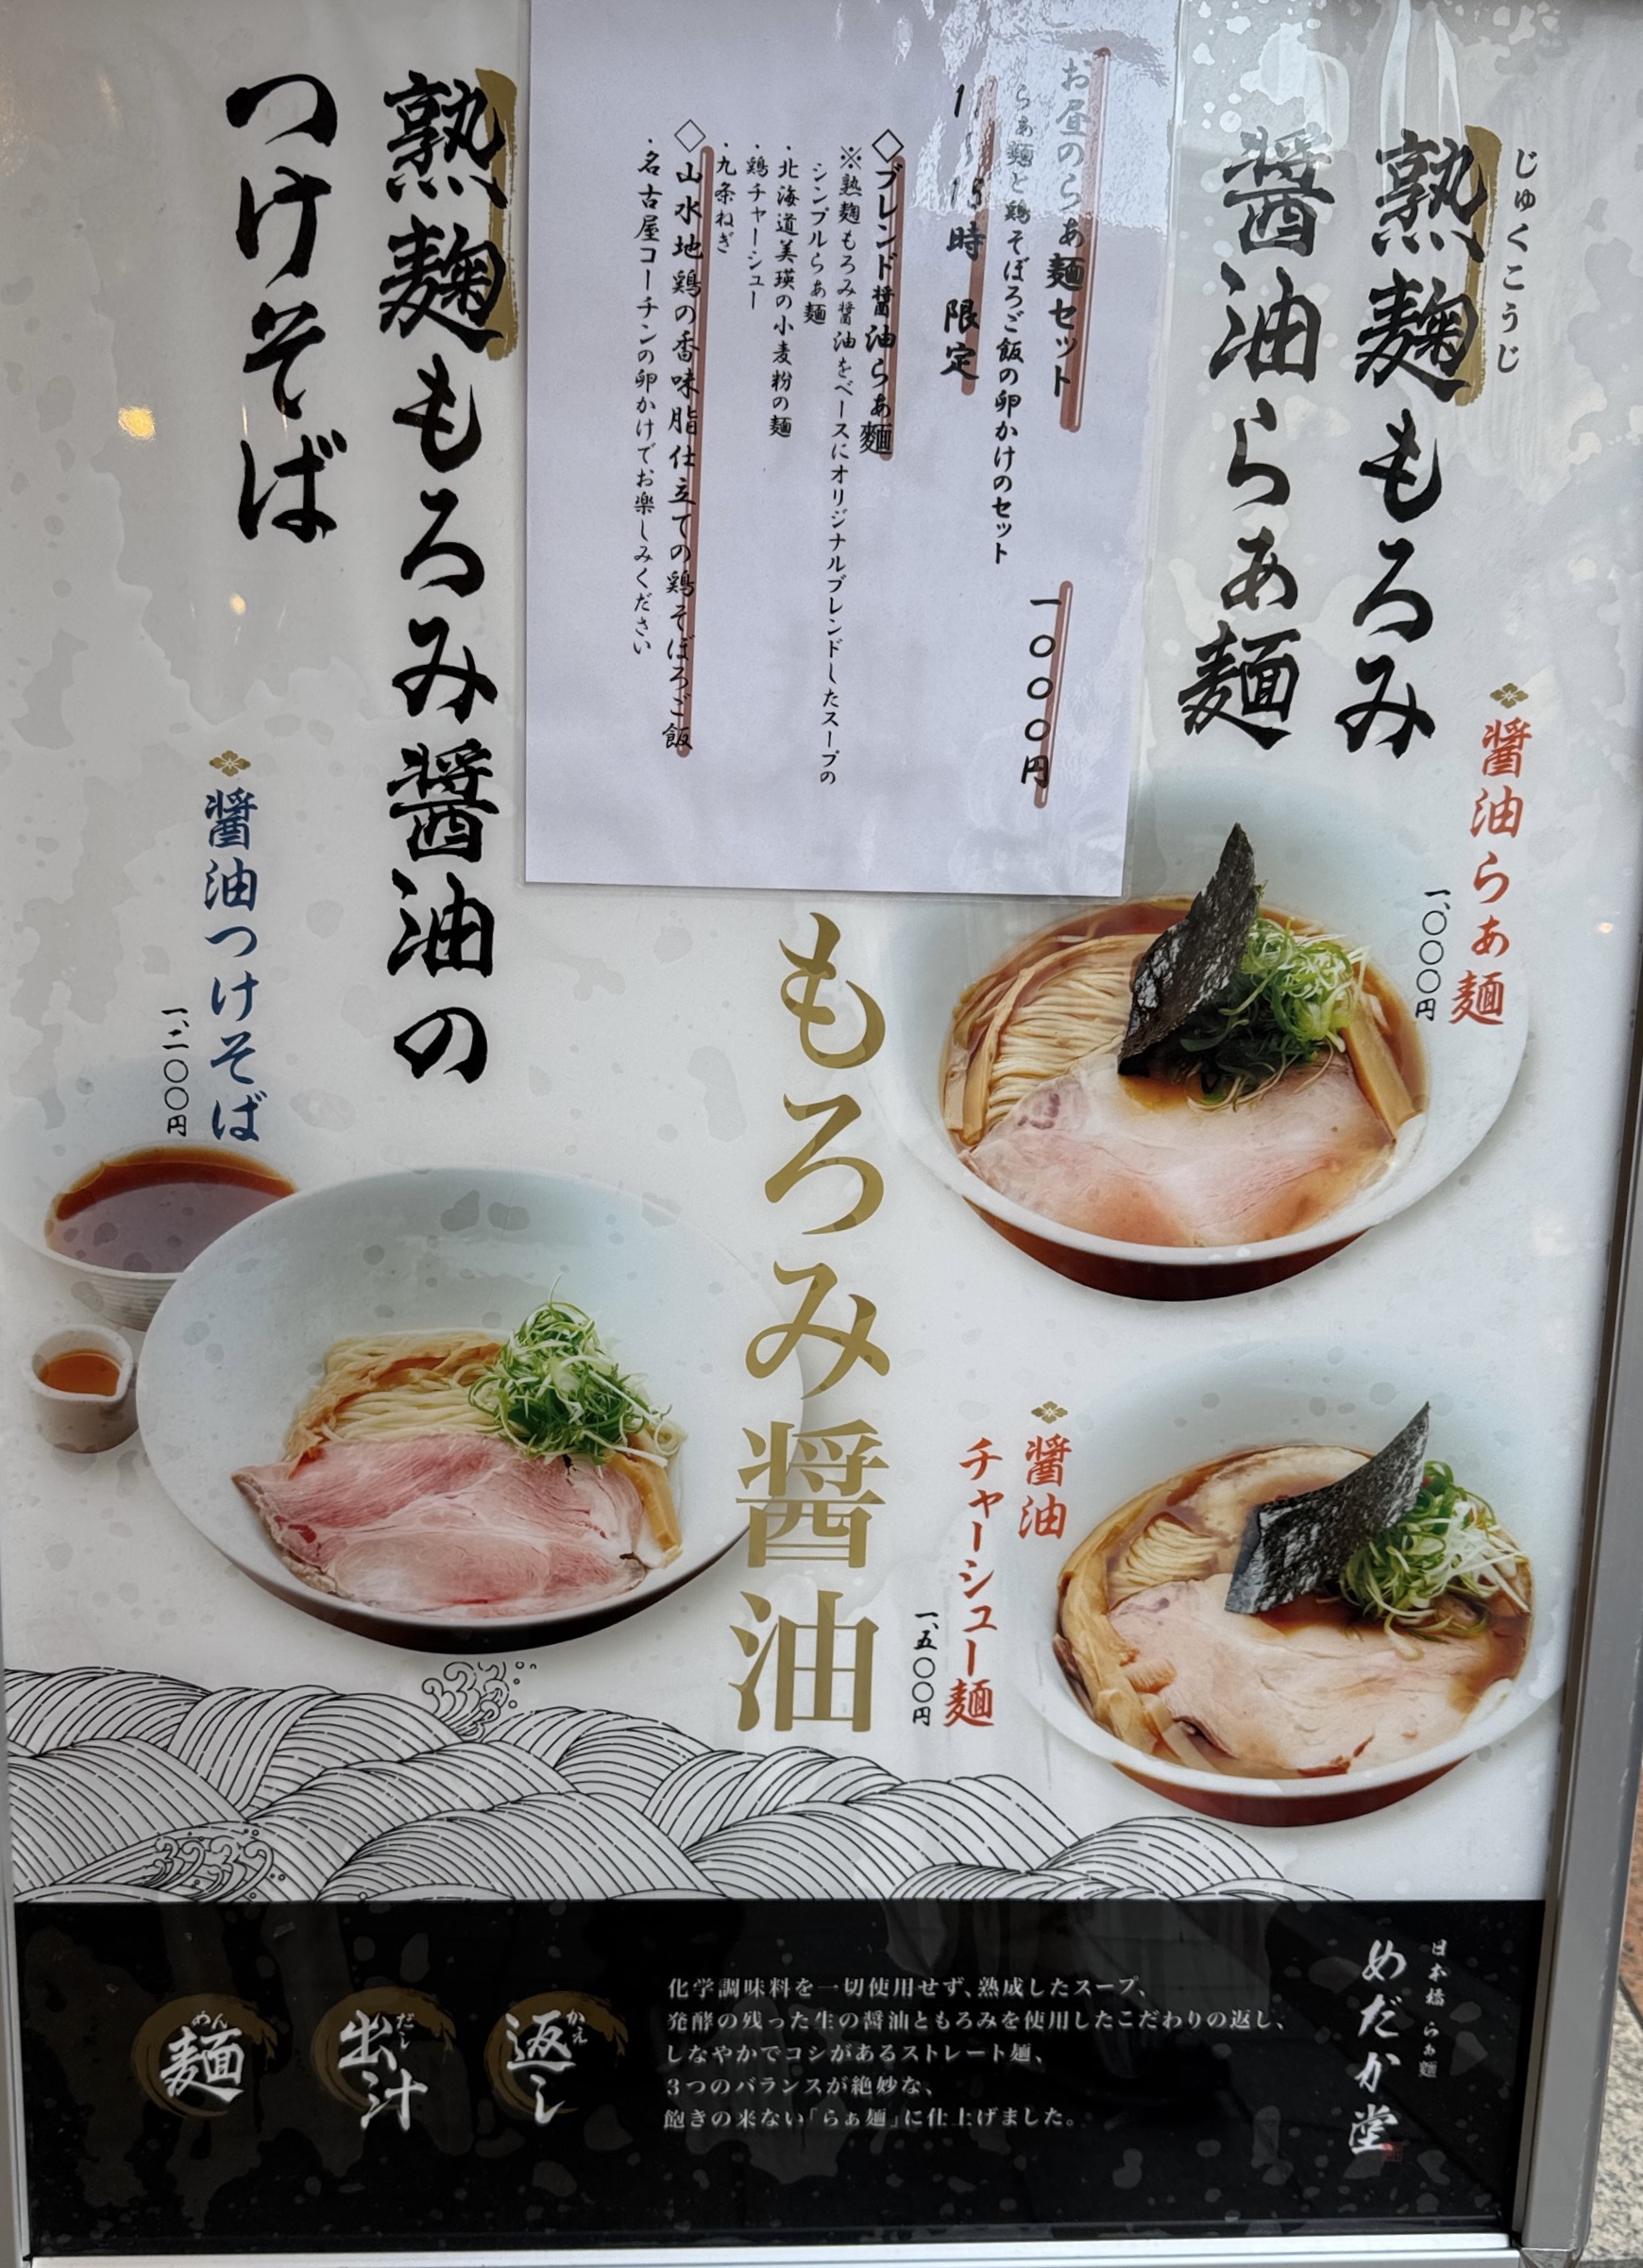 じゅくこうじ
熟麹もろみ
醤油らぁ麺
醤油らぁ麺
一、〇〇〇円
お昼のらぁ麺セット
一〇〇〇円
らぁ麺と鶏そぼろご飯の卵かけのセット
時 限定
◇ブレンド醤油らぁ麺
※熟麹もろみ醤油をベースにオリジナルブレンドしたスープの
シンプルらぁ麺
・北海道美瑛の小麦粉の麺
・鶏チャーシュー
・九条ねぎ
◇山水地鶏の香味脂仕立ての鶏そぼろご飯
・名古屋コーチンの卵かけでお楽しみください
もろみ醤油
醤油
チャーシュー麺
一、五〇〇円
熟麹もろみ醤油の
つけそば
醤油つけそば
一、二〇〇円
日本橋 らぁ麺
めだか堂
化学調味料を一切使用せず、熟成したスープ、
発酵の残った生の醤油ともろみを使用したこだわりの返し、
しなやかでコシがあるストレート麺、
3つのバランスが絶妙な、
飽きの来ない「らぁ麺」に仕上げました。
かえ
返し
だし
出汁
めん
麺